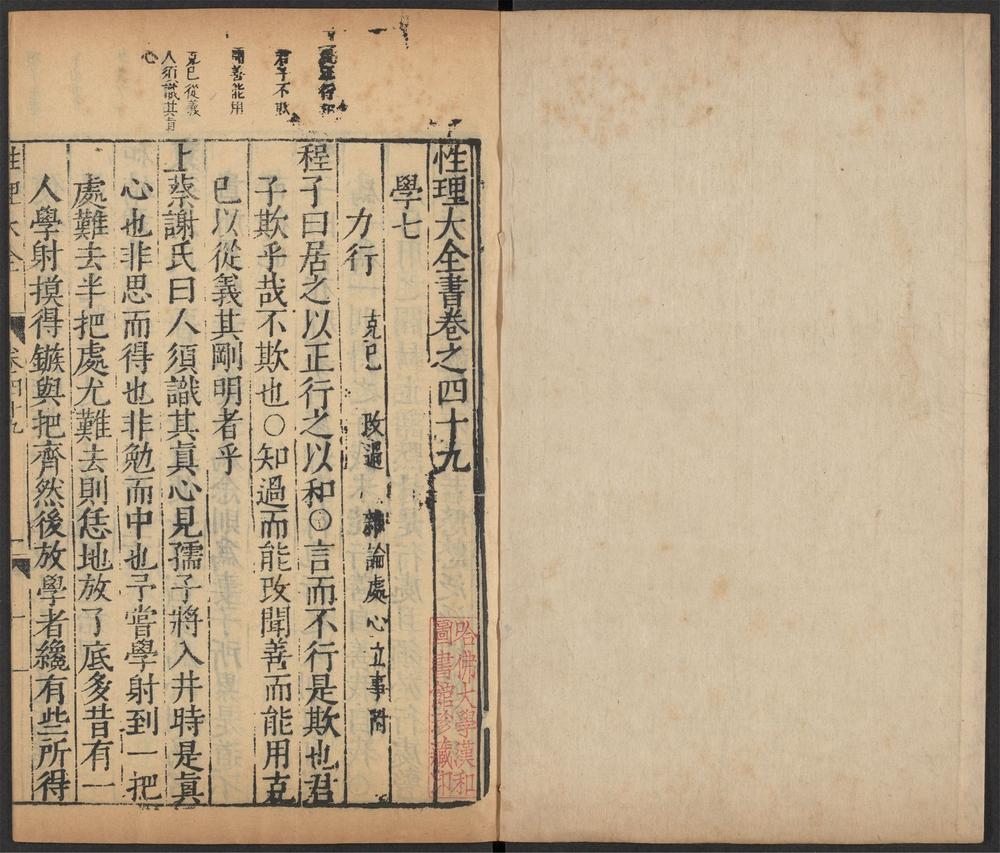 性理大全書卷之四十九
學七
力行 克己 改過 雜論處心立事附
程子曰居之以正行之以和○言而不行是欺也君
子欺乎哉不欺也○知過而能改聞善而能用克
己以從義其剛明者乎
上蔡謝氏曰人須識其真心見孺子將入井時是真
心也非思而得也非勉而中也予嘗學射到一把
處難去半把處尤難去則恁地放了底多昔有一
人學射摸得鏃與把齊然後放學者纔有些所得
性理大全 卷四十九 一
居正行和
君子不欺
聞善能用
克己從義
人須識其真
心
哈佛大學漢和
圖書館珍藏印